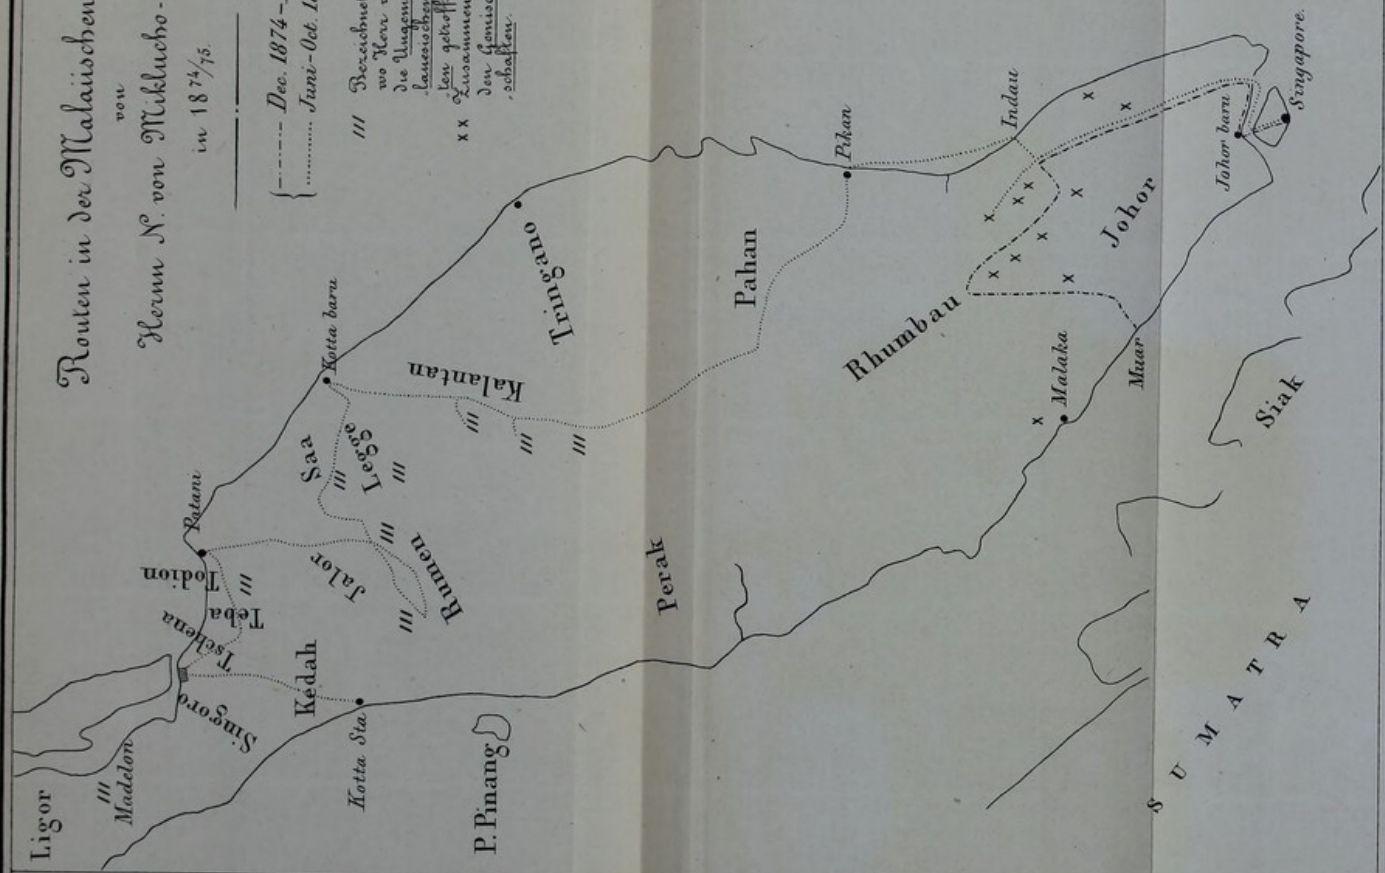 Routen in der Malaiischen
von
Herrn N. von Miklucho-
in 18 74/75.
Dec. 1874-
Juni-Oct. 18
/// Bezeichne
wo Herr v
die Ungem
laneischen
ten getroff
x x Zusammen
den Gemisc
schaften.
Ligor
Madelon
Singoro
Tschena
Teba
Todion
Patani
Kédah
Kotta Sta
P. Pinang
Jalor
Rumen
Saa
Legge
Kotta baru
Kalantan
Tringano
Perak
Pahan
Pikan
Rhumbau
Indau
Malaka
Muar
Johor
Johor baru
Singapore.
Siak
SUMATRA